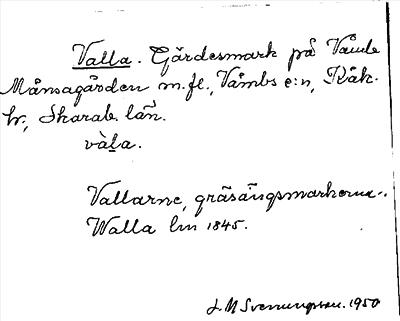 Valla. Gärdesmark på Våmb
Månsagården m.fl., Våmbs s:n, Kåk.
hr, Skarab. län.
vàl̲a.
Vallarne, gräsängsmarkerna.
Walla lm 1845.
L M Svenungsson. 1950